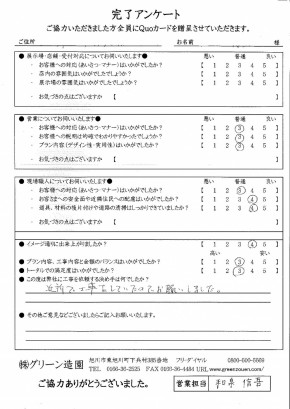 完了アンケート
ご協力いただきました方全員にQuoカードを贈呈させていただきます。
ご住所 お名前 様
●展示場・店舗・受付対応についてお伺いします● 悪い 普通 良い
・お客様への対応(あいさつ・マナー)はいかがでしたか? 【 1 2 3 4 5 】
・店内の雰囲気はいかがでしたか? 【 1 2 3 4 5 】
・展示場の雰囲気はいかがでしたか? 【 1 2 3 4 5 】
・お気づきの点はございますか 【 】
●営業についてお伺いします● 悪い 普通 良い
・お客様への対応(あいさつ・マナー)はいかがでしたか? 【 1 2 3 4 5 】
・お客様への説明は的確でわかりやすかったでしょうか? 【 1 2 3 4 5 】
・プラン内容(デザイン性・実用性)はいかがでしたか? 【 1 2 3 4 5 】
・お気づきの点はございますか 【 】
●現場職人についてお伺いします● 悪い 普通 良い
・お客様への対応(あいさつ・マナー)はいかがでしたか? 【 1 2 3 4 5 】
・お客様への安全面や近隣住民への配慮はいかがでしたか? 【 1 2 3 4 5 】
・道具、材料の後片付けや道路の清掃はしっかりできていましたか? 【 1 2 3 4 5 】
・お気づきの点はございますか 【 】
●イメージ通りに出来上がりましたか? 【 1 2 3 4 5 】
高い 普通 安い
●プラン内容、工事内容と金額のバランスはいかがでしたか? 【 1 2 3 4 5 】
●トータルでの満足度はいかがでしたか? 【 1 2 3 4 5 】
●この度は弊社に工事を依頼する決め手は何でしたか?
近所で工事をしていたのでお願いしました。
●その他ご意見などございましたらご記入お願いします。
㈱グリーン造園 旭川市東旭川町下兵村385番地 フリーダイヤル 0800-800-5569
TEL 0166-36-2525 FAX 0166-36-4484 URL www.greenzouen.com/
ご協力ありがとうございました。 営業担当 和泉 信吾